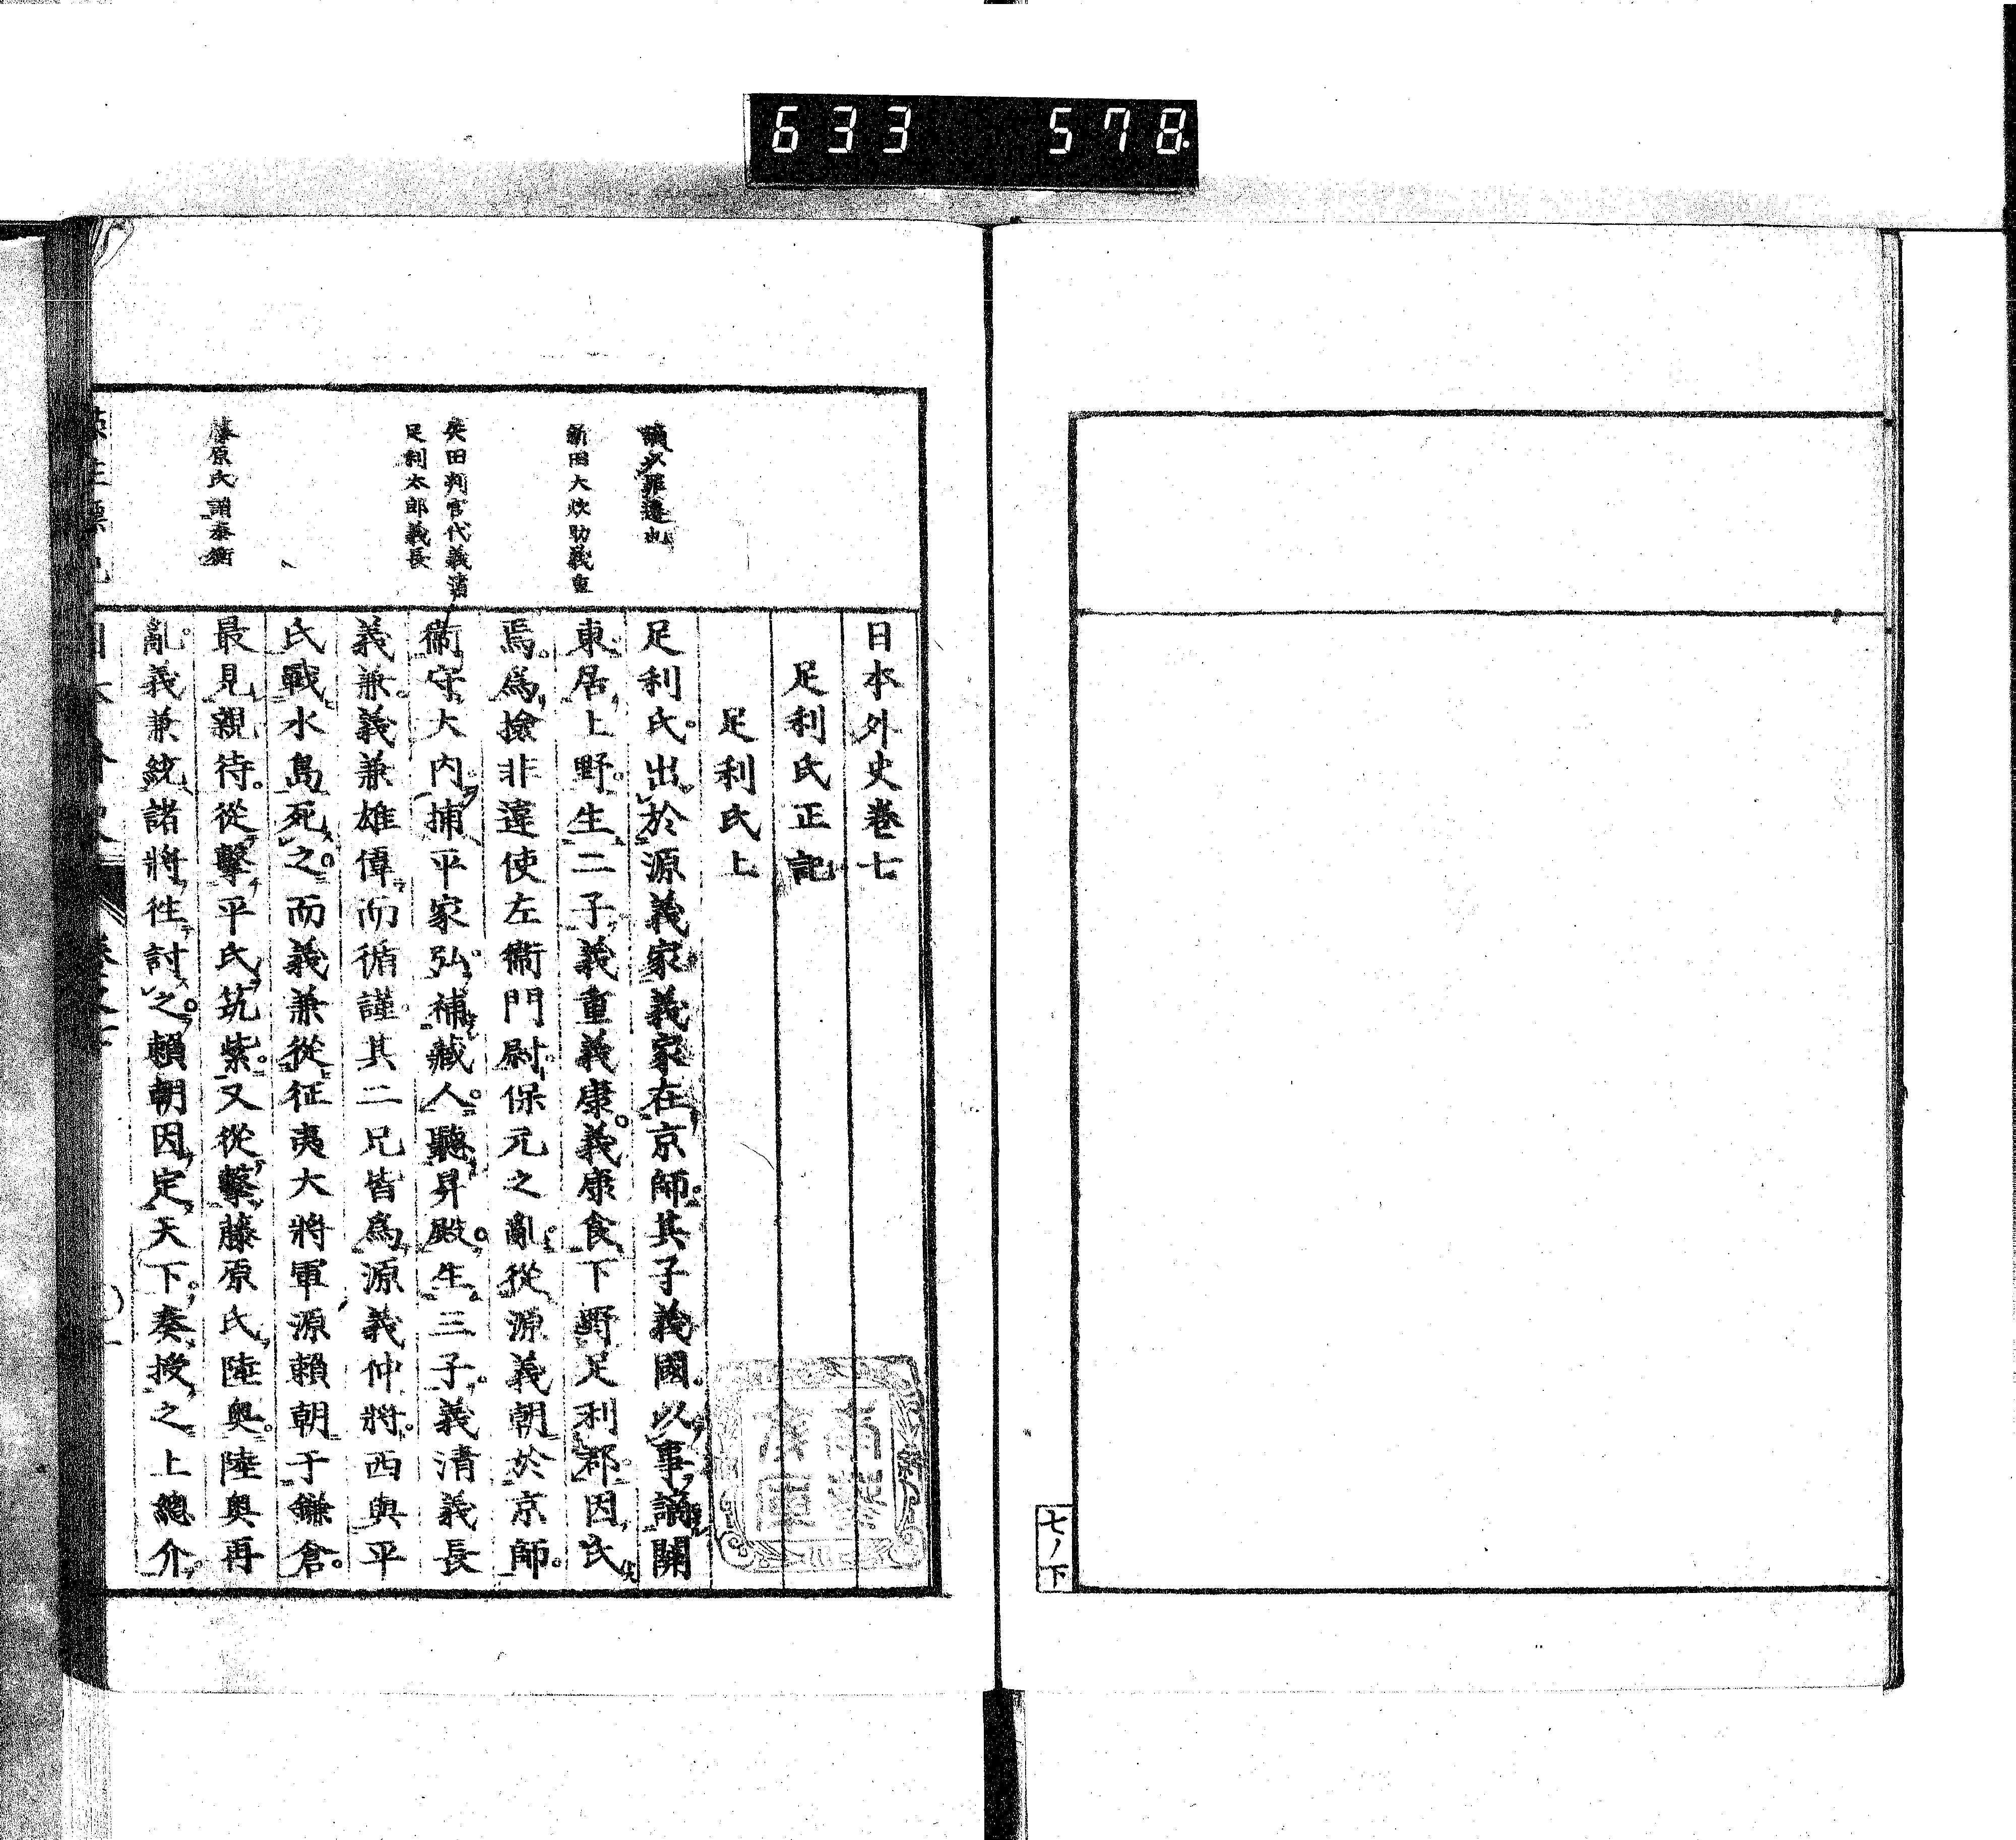 633 578
七ノ下
日本外史卷七
足利氏正記
足利氏上
足利氏。出於源義家。義家在京師。其子義國。以事謫關
東居上野。生二子。義重義康。義康食下野足利郡。因氏
焉。爲撿非違使左衞門尉。保元之亂。從源義朝於京師。
衞守大内。捕平家弘。補藏人。聽昇殿。生三子。義清義長
義兼。義兼雄偉而循謹。其二兄皆爲源義仲將。西與平
氏戰水島死之。而義兼從征夷大將軍源賴朝于鎌倉。
最見親待。從擊平氏筑紫。又從擊藤原氏陸奥。陸奥再
亂。義兼統諸將徃討之。賴朝因定天下。奏授之上總介。
謫以罪遷也
新田大炊助義重
矢田判官代義清
足利太郎義長
藤原氏謂泰衡